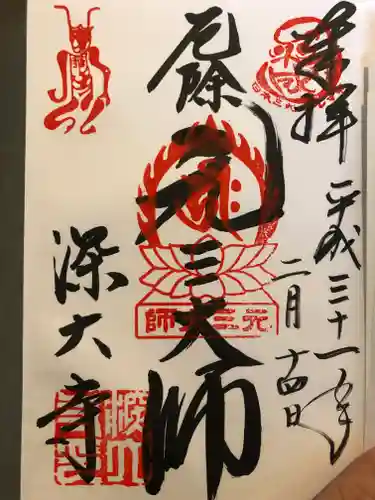 奉拝
平成三十一年
二月十四日
厄除
元三大師
深大寺
元三大師